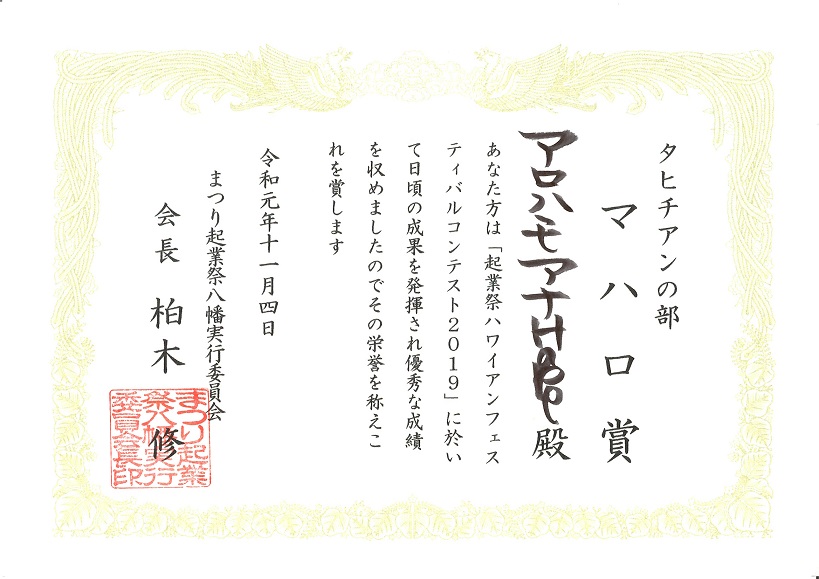 タヒチアンの部
マハロ賞
アロハモアナHope殿
あなた方は「起業祭ハワイアンフェス
ティバルコンテスト2019」に於い
て日頃の成果を発揮され優秀な成績
を収めましたのでその栄誉を称えこ
れを賞します
令和元年十一月四日
まつり起業祭八幡実行委員会
会長 柏木 修
まつり起業
祭八幡実行
委員会長印